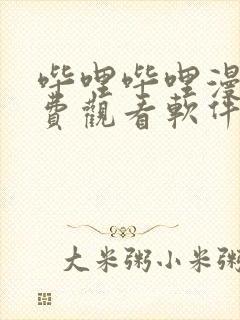 哔哩哔哩漫
費觀看軟件
大米粥小米粥